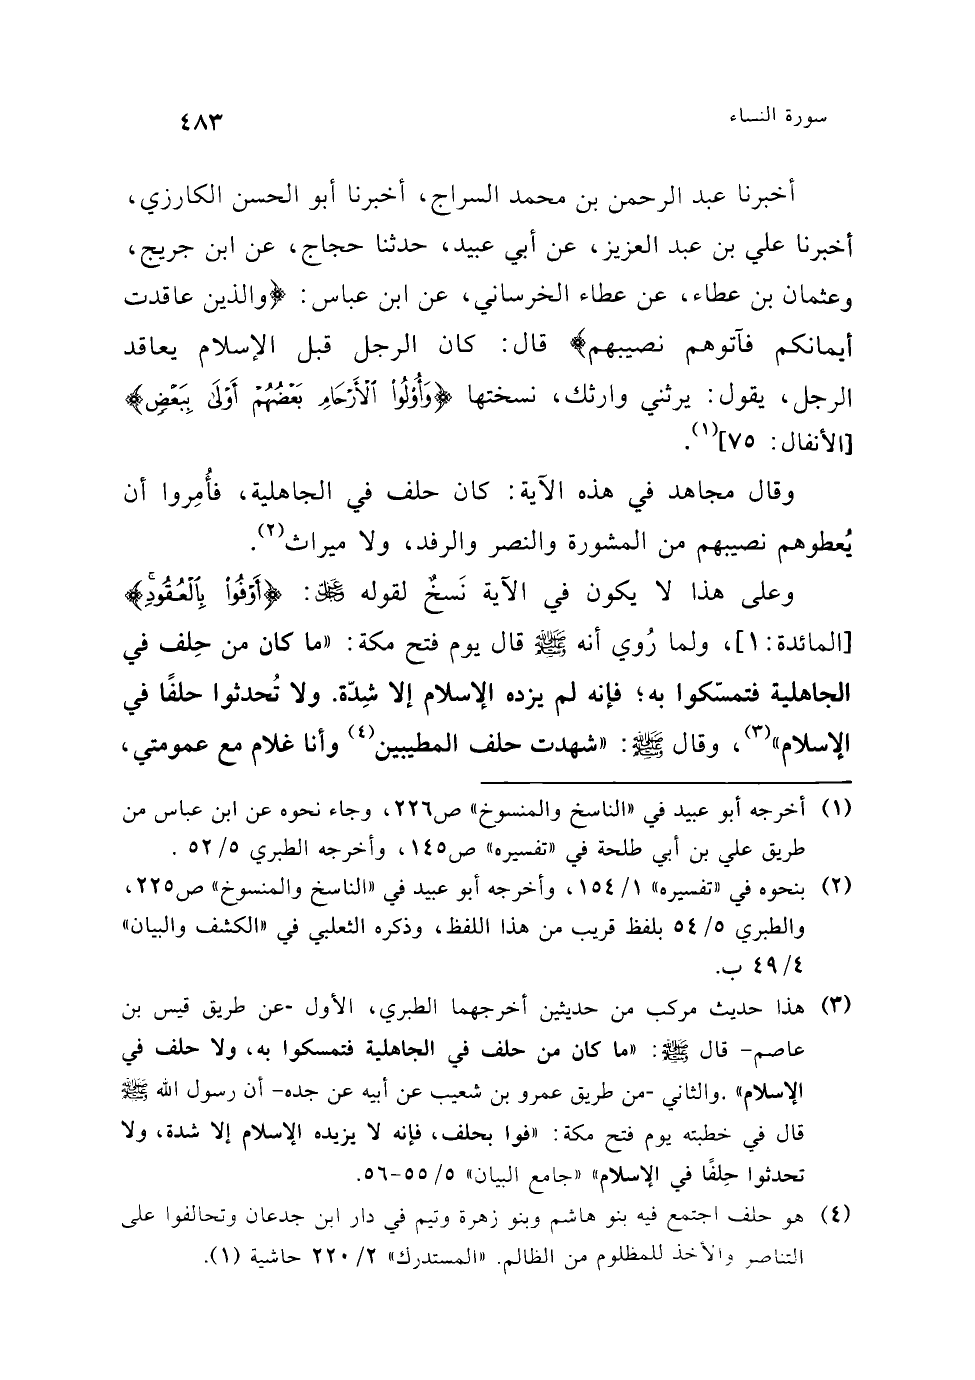 سورة النساء
٤٨٣
أخبرنا عبد الرحمن بن محمد السراج، أخبرنا أبو الحسن الكارزي،
أخبرنا علي بن عبد العزيز، عن أبي عبيد، حدثنا حجاج، عن ابن جريج،
وعثمان بن عطاء، عن عطاء الخرساني، عن ابن عباس: ﴿والذين عاقدت
أيمانكم فآتوهم نصيبهم﴾ قال: كان الرجل قبل الإسلام يعاقد
الرجل، يقول: يرثني وارثك، نسختها ﴿وَأُوْلُواْ ٱلْأَرْحَامِ بَعْضُهُمْ أَوْلَىٰ بِبَعْضٍ﴾
[الأنفال: ٧٥](١).
وقال مجاهد في هذه الآية: كان حلف في الجاهلية، فأُمِروا أن
يُعطوهم نصيبهم من المشورة والنصر والرفد، ولا ميراث(٢).
وعلى هذا لا يكون في الآية نَسخٌ لقوله ﷿: ﴿أَوْفُواْ بِٱلْعُقُودِۚ﴾
[المائدة: ١]، ولما رُوي أنه ﷺ قال يوم فتح مكة: «ما كان من حِلف في
الجاهلية فتمسّكوا به؛ فإنه لم يزده الإسلام إلا شِدّة. ولا تُحدثوا حلفًا في
الإسلام»(٣)، وقال ﷺ: «شهدت حلف المطيبين(٤) وأنا غلام مع عمومتي،
(١) أخرجه أبو عبيد في «الناسخ والمنسوخ» ص٢٢٦، وجاء نحوه عن ابن عباس من
طريق علي بن أبي طلحة في «تفسيره» ص١٤٥، وأخرجه الطبري ٥/ ٥٢ .
(٢) بنحوه في «تفسيره» ١/ ١٥٤، وأخرجه أبو عبيد في «الناسخ والمنسوخ» ص٢٢٥،
والطبري ٥/ ٥٤ بلفظ قريب من هذا اللفظ، وذكره الثعلبي في «الكشف والبيان»
٤/ ٤٩ ب.
(٣) هذا حديث مركب من حديثين أخرجهما الطبري، الأول -عن طريق قيس بن
عاصم- قال ﷺ: «ما كان من حلف في الجاهلية فتمسكوا به، ولا حلف في
الإسلام» .والثاني -من طريق عمرو بن شعيب عن أبيه عن جده- أن رسول الله ﷺ
قال في خطبته يوم فتح مكة: «فوا بحلف، فإنه لا يزيده الإسلام إلا شدة، ولا
تحدثوا حِلفًا في الإسلام» «جامع البيان» ٥/ ٥٥-٥٦.
(٤) هو حلف اجتمع فيه بنو هاشم وبنو زهرة وتيم في دار ابن جدعان وتحالفوا على
التناصر والأخذ للمظلوم من الظالم. «المستدرك» ٢/ ٢٢٠ حاشية (١).